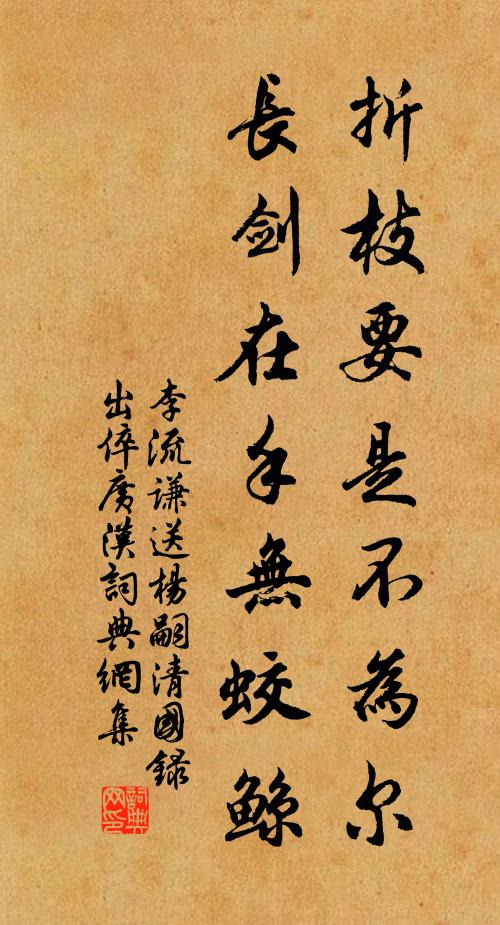 折枝要是不為尔
長剑在手無蛟鯨
李流謙送楊嗣清國録
出倅廣漢詞典網集
詞典網印